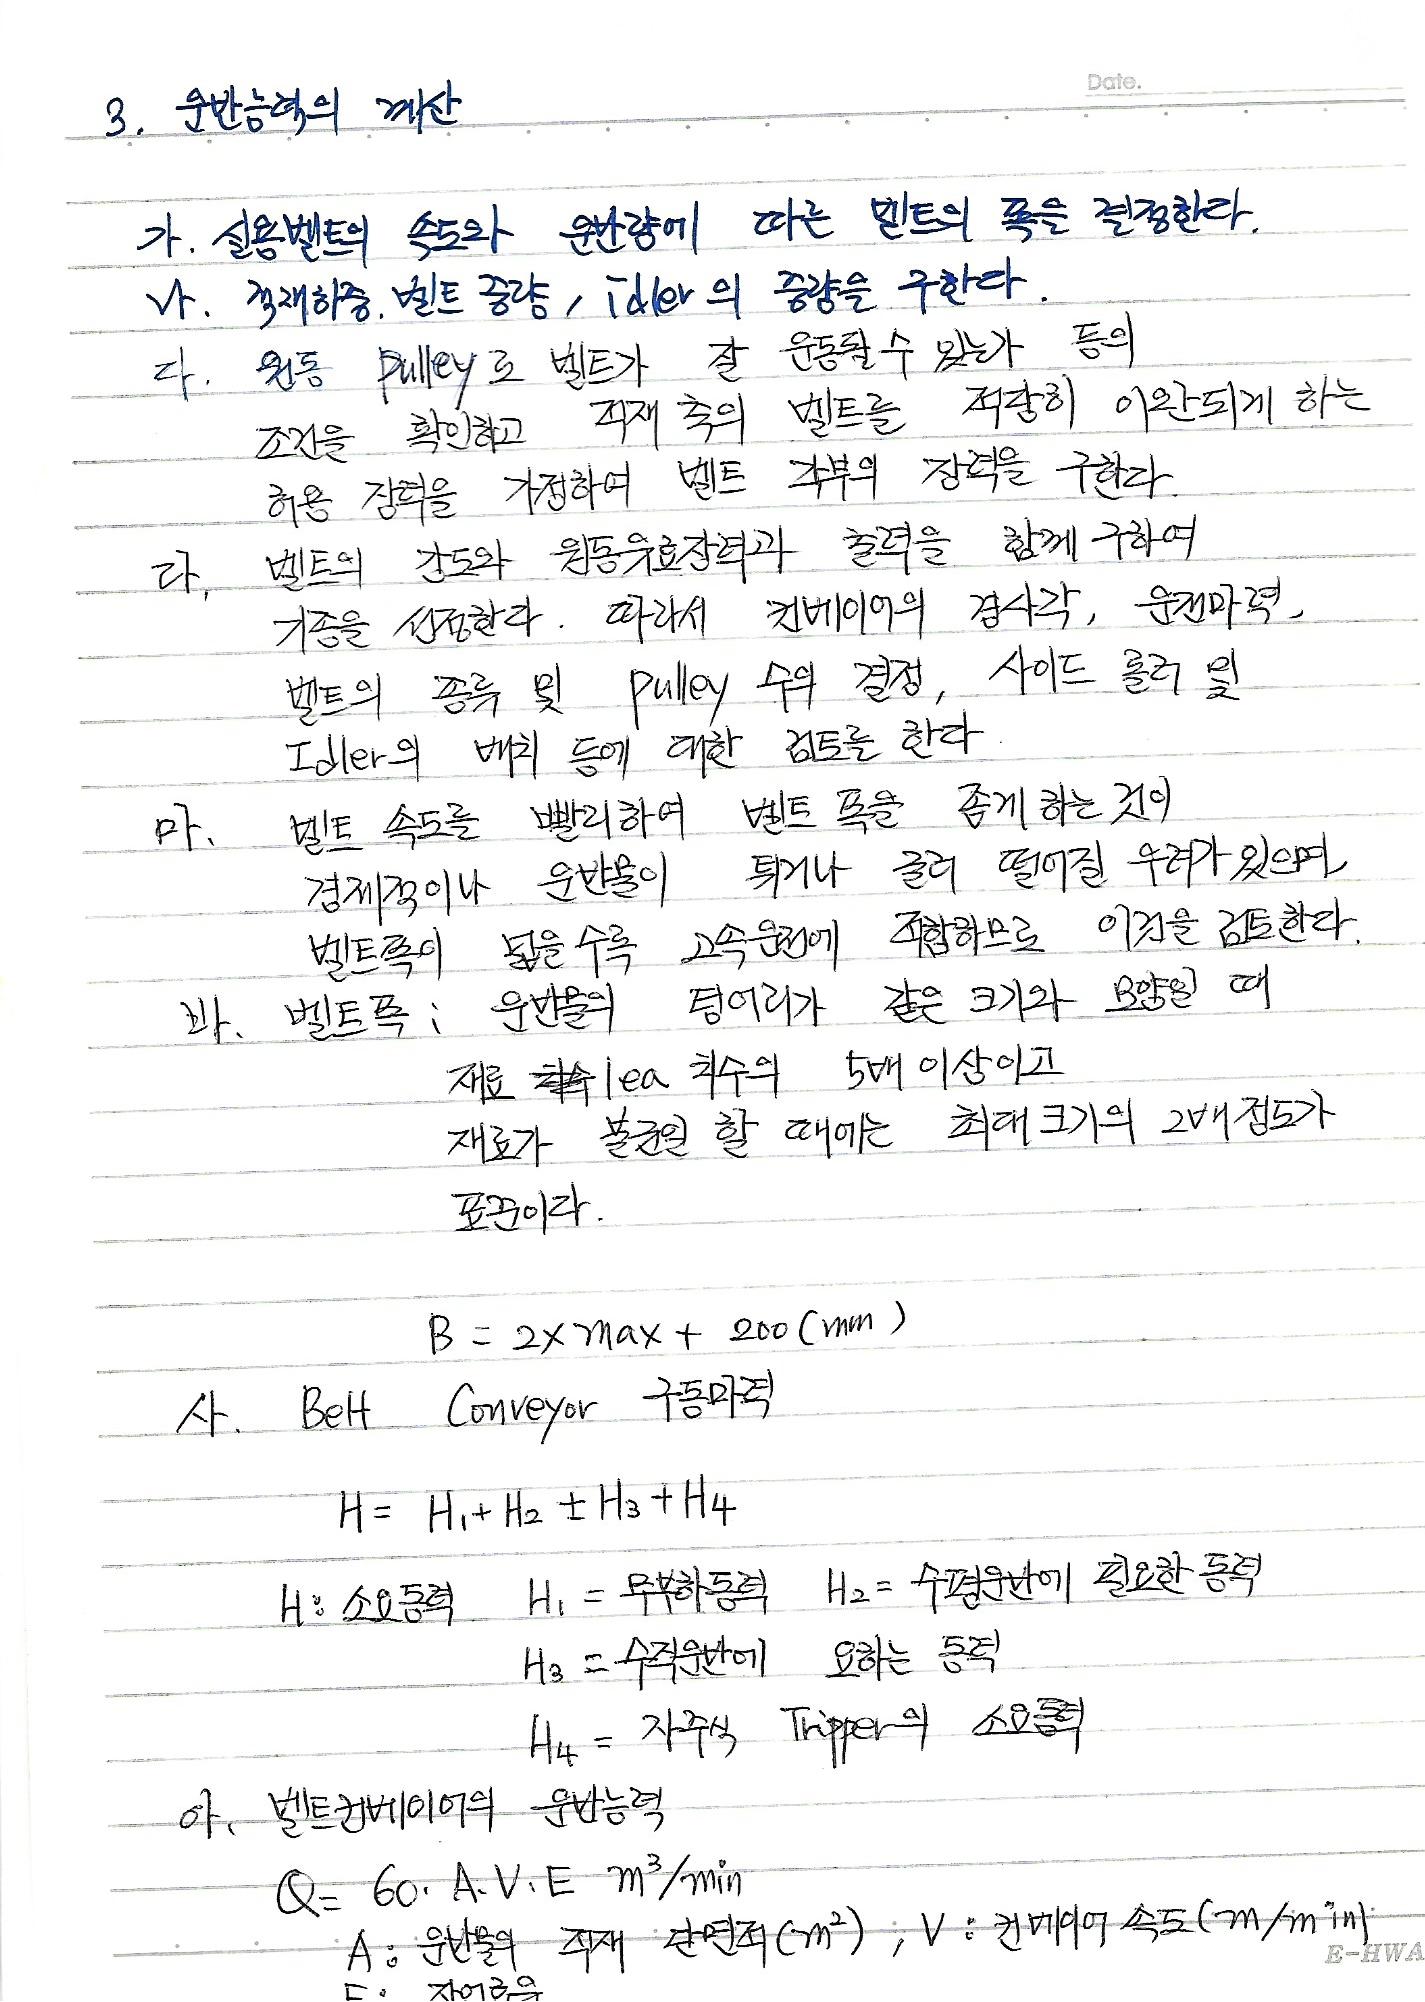 Date.
3. 운반능력의 계산
가. 실용벨트의 속도와 운반량에 따른 벨트의 폭을 결정한다.
나. 적재하중. 벨트 중량, idler의 중량을 구한다.
다. 원동 pulley로 벨트가 잘 운동될 수 있는가 등의
조건을 확인하고 적재 측의 벨트를 적당히 이완되게 하는
허용 장력을 가정하여 벨트 각부의 장력을 구한다.
다. 벨트의 강도와 원동유효장력과 출력을 함께 구하여
기종을 선정한다. 따라서 컨베이어의 경사각, 운전마력,
벨트의 종류 및 pulley 수의 결정, 사이드 롤러 및
Idler의 배치 등에 대한 검토를 한다
마. 벨트 속도를 빨리하여 벨트 폭을 좁게 하는 것이
경제적이나 운반물이 튀거나 굴러 떨어질 우려가 있으며
벨트폭이 넓을수록 고속운전에 적합하므로 이것을 검토한다.
바. 벨트폭 : 운반물의 덩어리가 같은 크기와 모양일 때
재료 1ea 치수의 5배 이상이고
재료가 불균일 할 때에는 최대크기의 2배 정도가
표준이다.
B = 2x max + 200 (mm)
사. Belt Conveyor 구동마력
H = H₁ + H₂ ± H₃ + H₄
H: 소요동력 H₁ = 무부하동력 H₂ = 수평운반에 필요한 동력
H₃ = 수직운반에 요하는 동력
H₄ = 자주식 Tripper의 소요동력
아. 벨트컨베이어의 운반능력
Q = 60·A·V·E m³/min
A: 운반물의 적재 단면적(m²), V: 컨베이어 속도(m/min)
E-HWA
E: